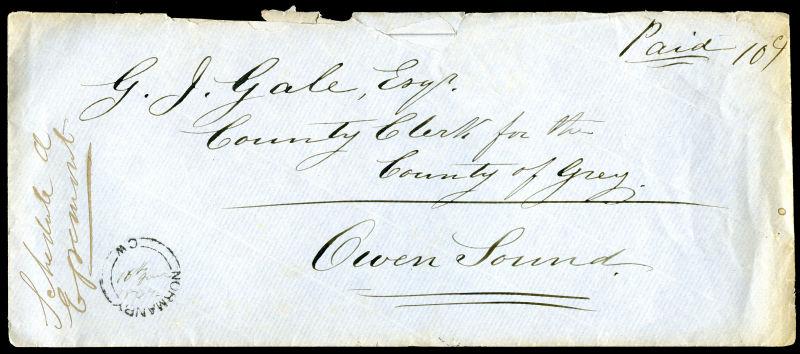 Paid 10¢
G. J. Gale, Esqr.
County Clerk for the
County of Grey.
Owen Sound.
Schedule A
Egremont
NORMANBY
C.W